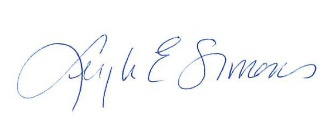 Leigh E Simons